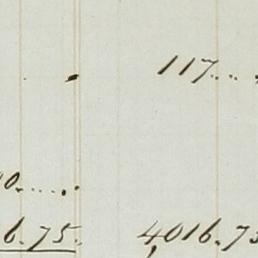 117....
0.....
6.75.
4016.73